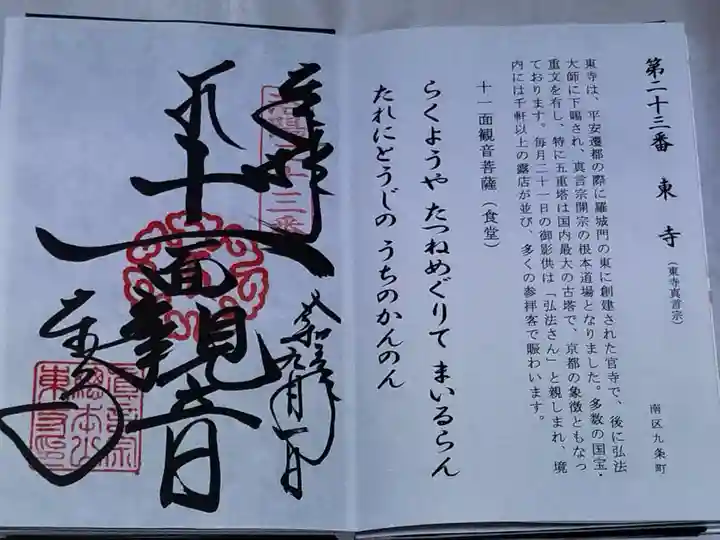 第二十三番 東寺 (東寺真言宗)
南区九条町
東寺は、平安遷都の際に羅城門の東に創建された官寺で、後に弘法
大師に下賜され、真言宗開宗の根本道場となりました。多数の国宝・
重文を有し、特に五重塔は国内最大の古塔で、京都の象徴ともなっ
ております。毎月二十一日の御影供は「弘法さん」と親しまれ、境
内には千軒以上の露店が並び、多くの参拝客で賑わいます。
十一面観音菩薩(食堂)
らくようや たつねめぐりて まいるらん
たれにとうじの うちのかんのん
奉拝
十一面観音
九月一日
二十三番